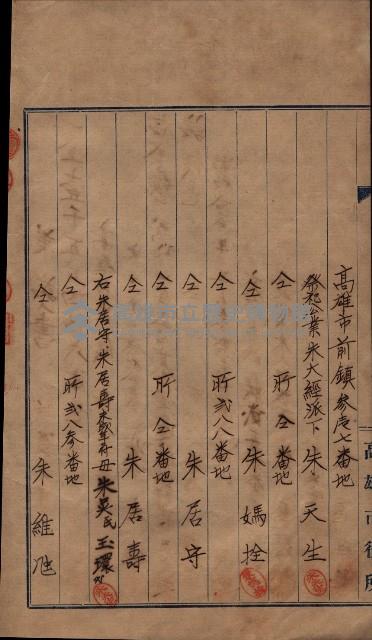 高雄市前鎮參〇七番地
祭祀公業朱大經派下 朱天生
仝 所仝番地
仝 朱媽拴
仝 所貳八八番地
仝 朱居守
仝 所仝番地
仝 朱居壽
右朱居守、朱居壽 母朱吳氏玉環
仝 所貳八參番地
仝 朱維
高雄市役所
高雄市立歷史博物館